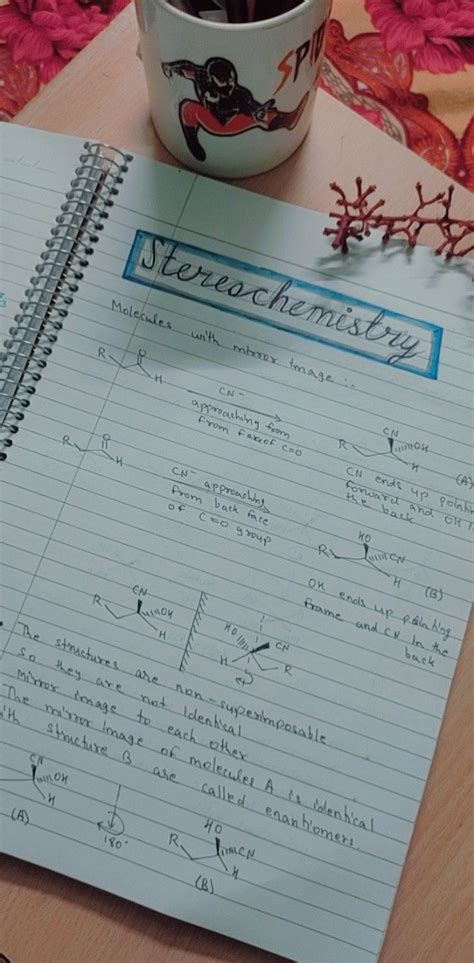 SPID
Stereochemistry
Molecules with mirror image :-
R O H
CN⁻
approaching from
from face of C=O
R CN OH H
(A)
CN ends up pointing
forward and OH in
the back
R O H
CN⁻ approaching
from back face
of C=O group
R HO CN H
(B)
OH ends up pointing
frame and CN in the
back
R CN OH H
HO CN H R
The structures are non-superimposable
so they are not identical
Mirror image to each other
The mirror image of molecules A is identical
with structure B are called enantiomers.
CN OH H
(A)
180°
R HO CN H
(B)